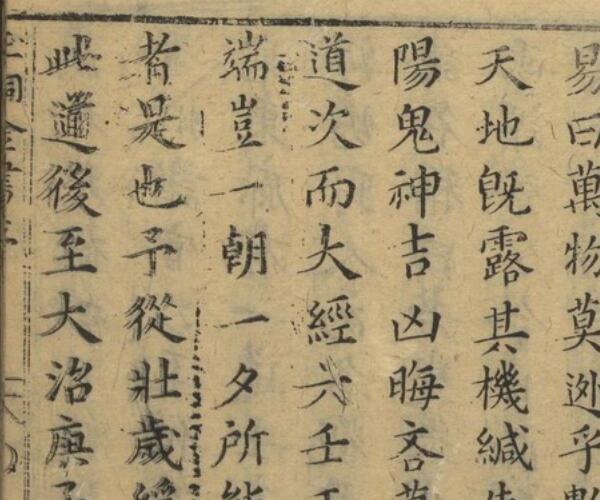 易曰萬物莫迯乎數
天地旣露其機緘
陽鬼神吉凶晦吝
道次而大經六壬
端豈一朝一夕所能
者是也予從壯歲
此道後至大治庚子